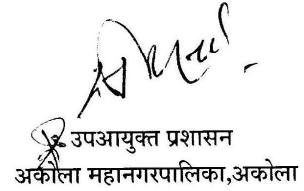 उपआयुक्त प्रशासन
अकोला महानगरपालिका,अकोला